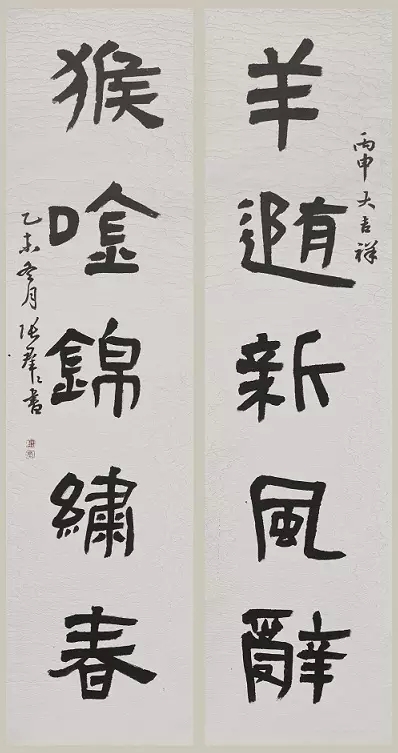 丙申大吉祥
羊隨新風辭
猴唫錦繡春
乙未冬月張羣書